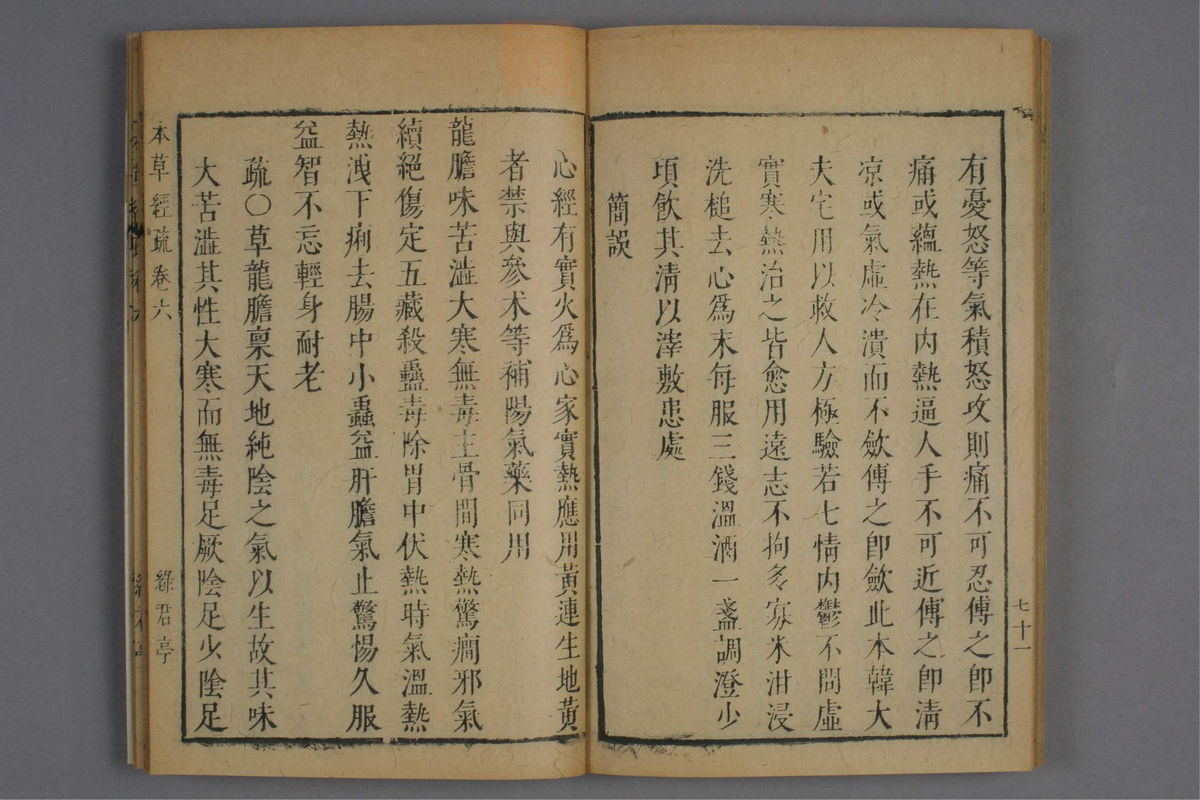 有憂怒等氣積怒攻則痛不可忍傅之卽不
痛或蘊熱在內熱逼人手不可近傅之卽淸
凉或氣虛冷潰而不斂傅之卽斂此本韓大
夫宅用以救人方極驗若七情內鬱不問虛
實寒熱治之皆愈用遠志不拘多寡米泔浸
洗槌去心爲末每服三錢溫酒一盞調澄少
頃飮其淸以滓敷患處
簡誤
七十一
心經有實火爲心家實熱應用黃連生地黃
者禁與參术等補陽氣藥同用
龍膽味苦澁大寒無毒主骨間寒熱驚癎邪氣
續絕傷定五藏殺蠱毒除胃中伏熱時氣溫熱
熱洩下痢去腸中小蟲益肝膽氣止驚惕久服
益智不忘輕身耐老
疏〇草龍膽稟天地純陰之氣以生故其味
大苦澁其性大寒而無毒足厥陰足少陰足
本草經疏卷六
綠君亭